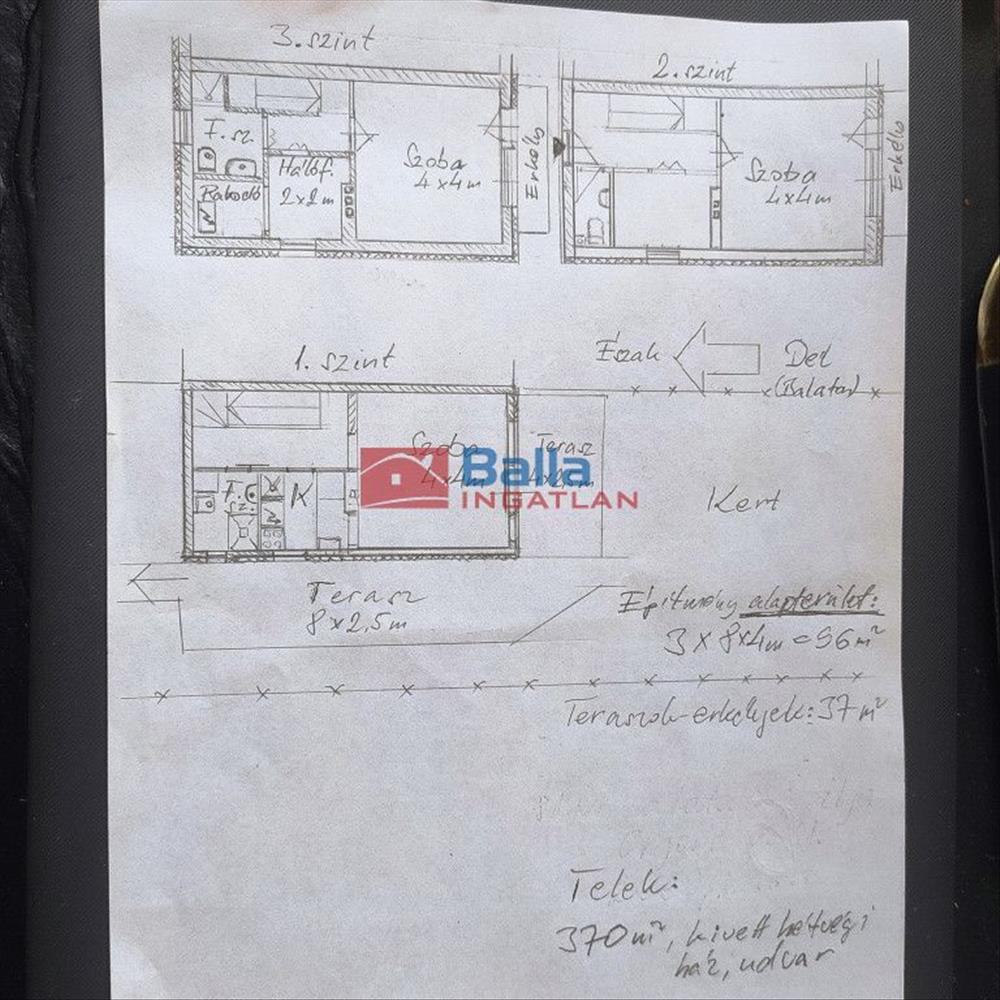 3. szint
2. szint
F. sz.
Hálóf.
2x2m
Szoba
4x4m
Erkély
Rakodó
Szoba
4x4m
Erkély
1. szint
Észak
Dél
(Balaton)
Szoba
4x4m
Terasz
4x2,5m
Balla
INGATLAN
F.
sz.
K
Kert
Terasz
8x2,5m
Építmény alapterület:
3x8x4m=96m²
Teraszok-erkélyek: 37m²
Telek:
370m², kivett hétvégi
ház, udvar